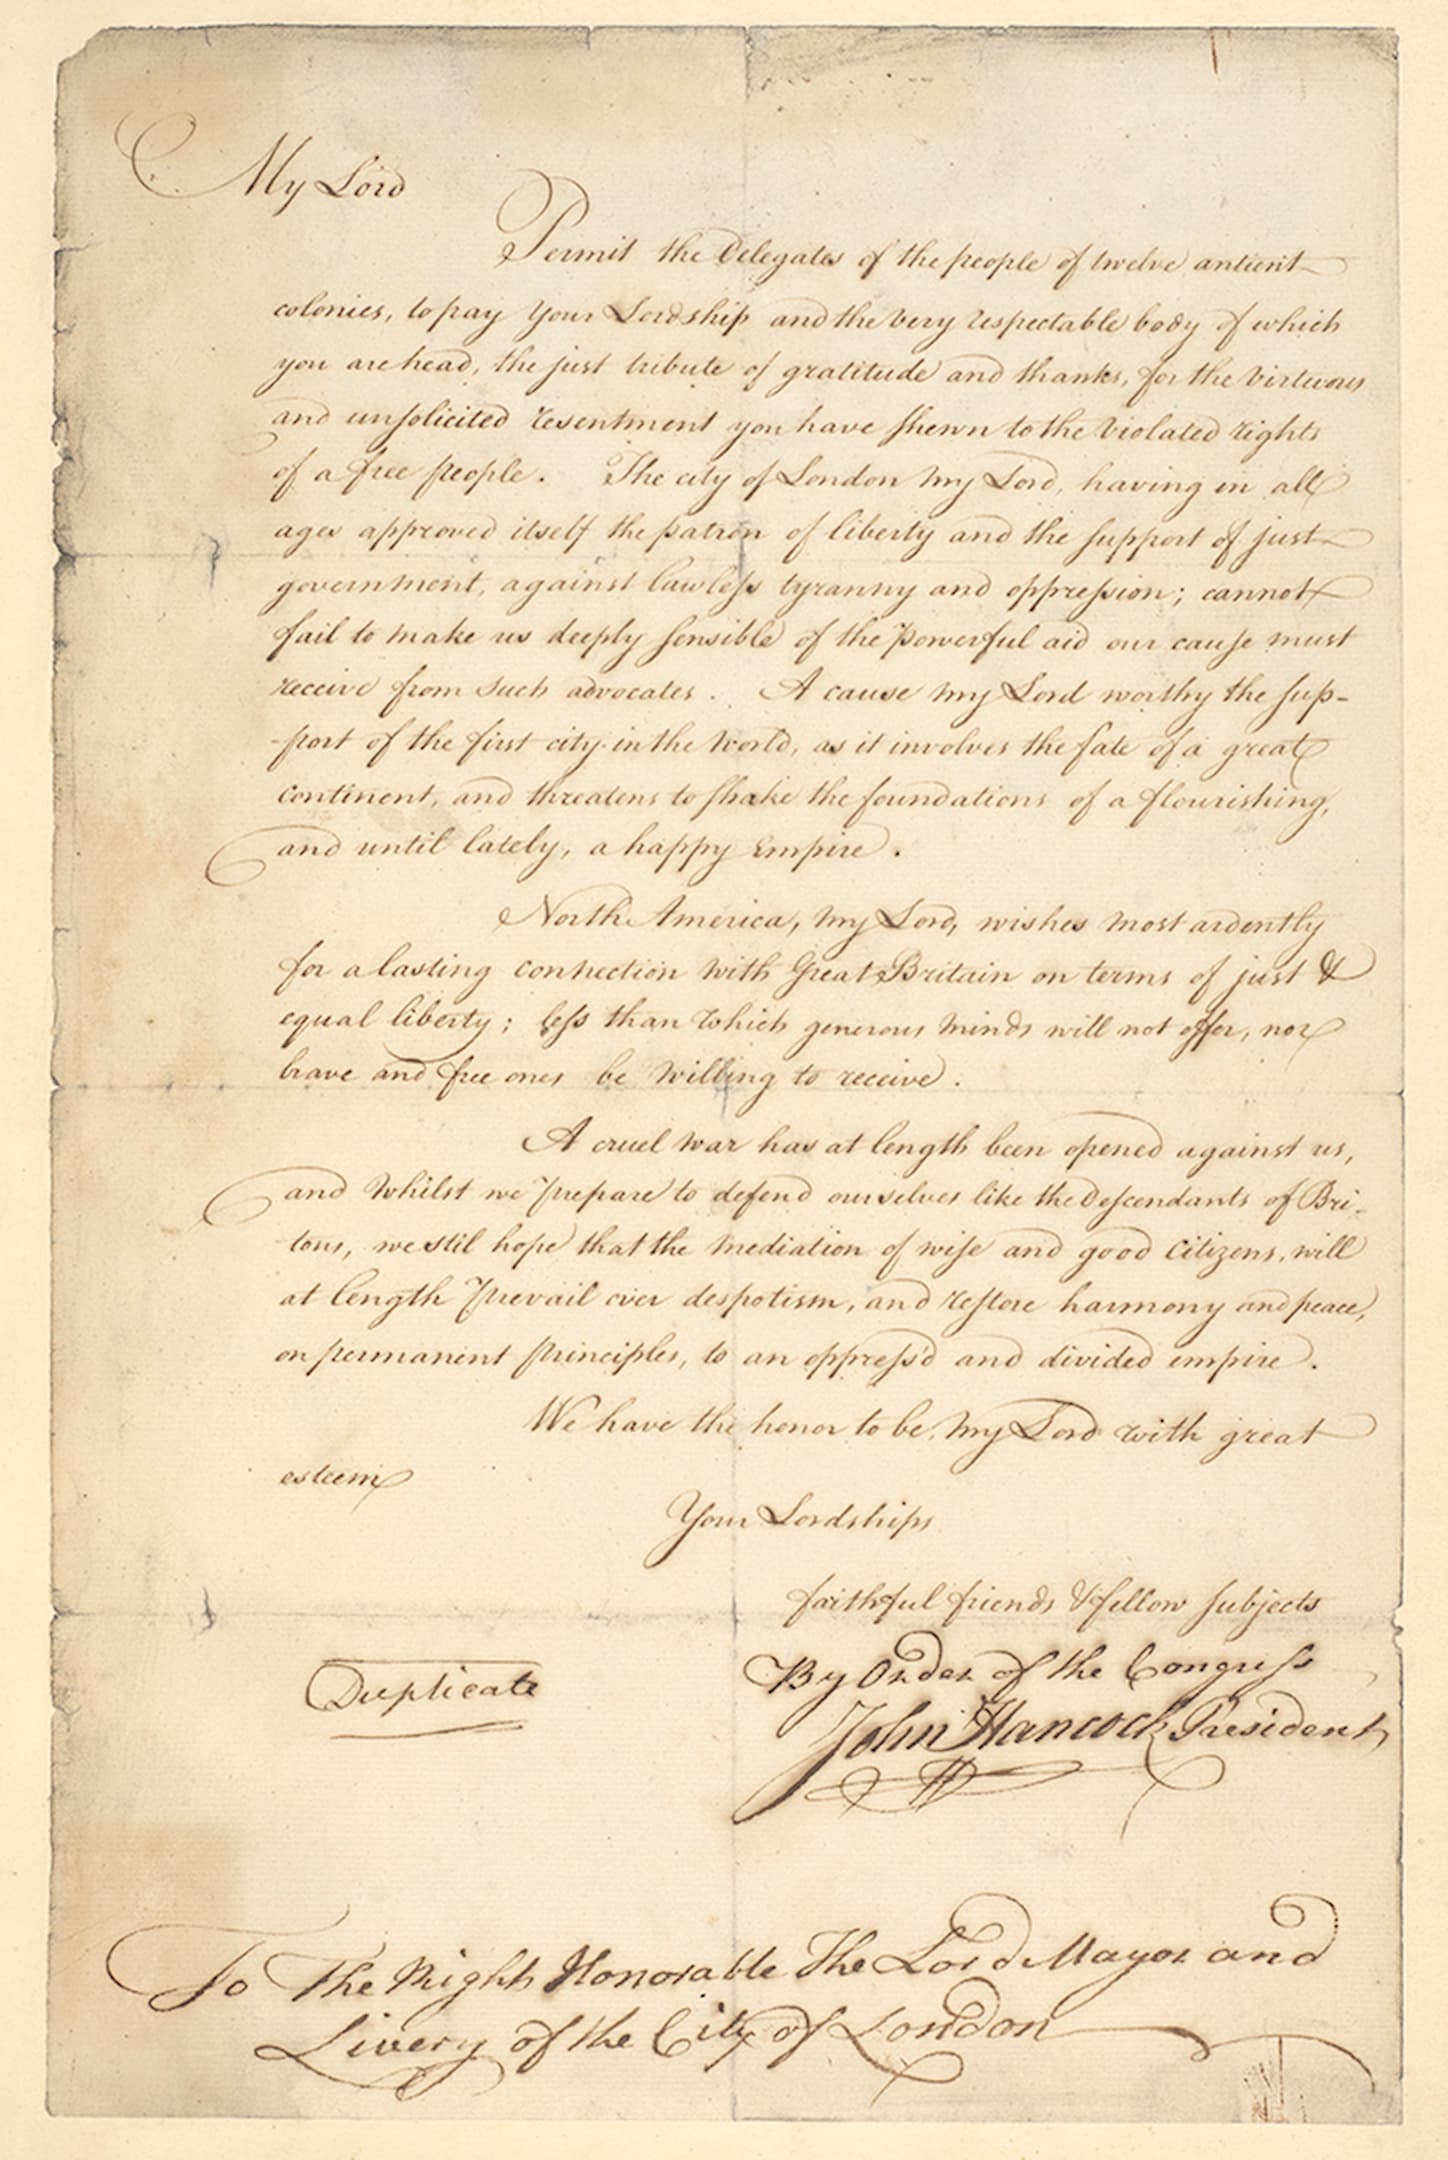 My Lord
Permit the Delegates of the people of twelve antient
colonies, to pay Your Lordship and the very respectable body of which
you are head, the just tribute of gratitude and thanks, for the virtuous
and unsolicited resentment you have shewn to the violated rights
of a free people. The city of London my Lord, having in all
ages approved itself the patron of liberty and the support of just
government, against lawless tyranny and oppression; cannot
fail to make us deeply sensible of the powerful aid our cause must
receive from such advocates. A cause my Lord worthy the sup-
-port of the first city in the world, as it involves the fate of a great
continent, and threatens to shake the foundations of a flourishing,
and until lately, a happy Empire.
North America, my Lord, wishes most ardently
for a lasting connection with Great Britain on terms of just &
equal liberty; less than which generous minds will not offer, nor
brave and free ones be willing to receive.
A cruel war has at length been opened against us,
and whilst we prepare to defend ourselves like the descendants of Bri-
tons, we stil hope that the mediation of wise and good citizens, will
at length prevail over despotism, and restore harmony and peace,
on permanent principles, to an oppress'd and divided empire.
We have the honor to be, my Lord with great
esteem
Your Lordships
faithful friends & fellow subjects
By Order of the Congress
Duplicate
John Hancock President
To The Right Honorable The Lord Mayor and
Livery of the City of London